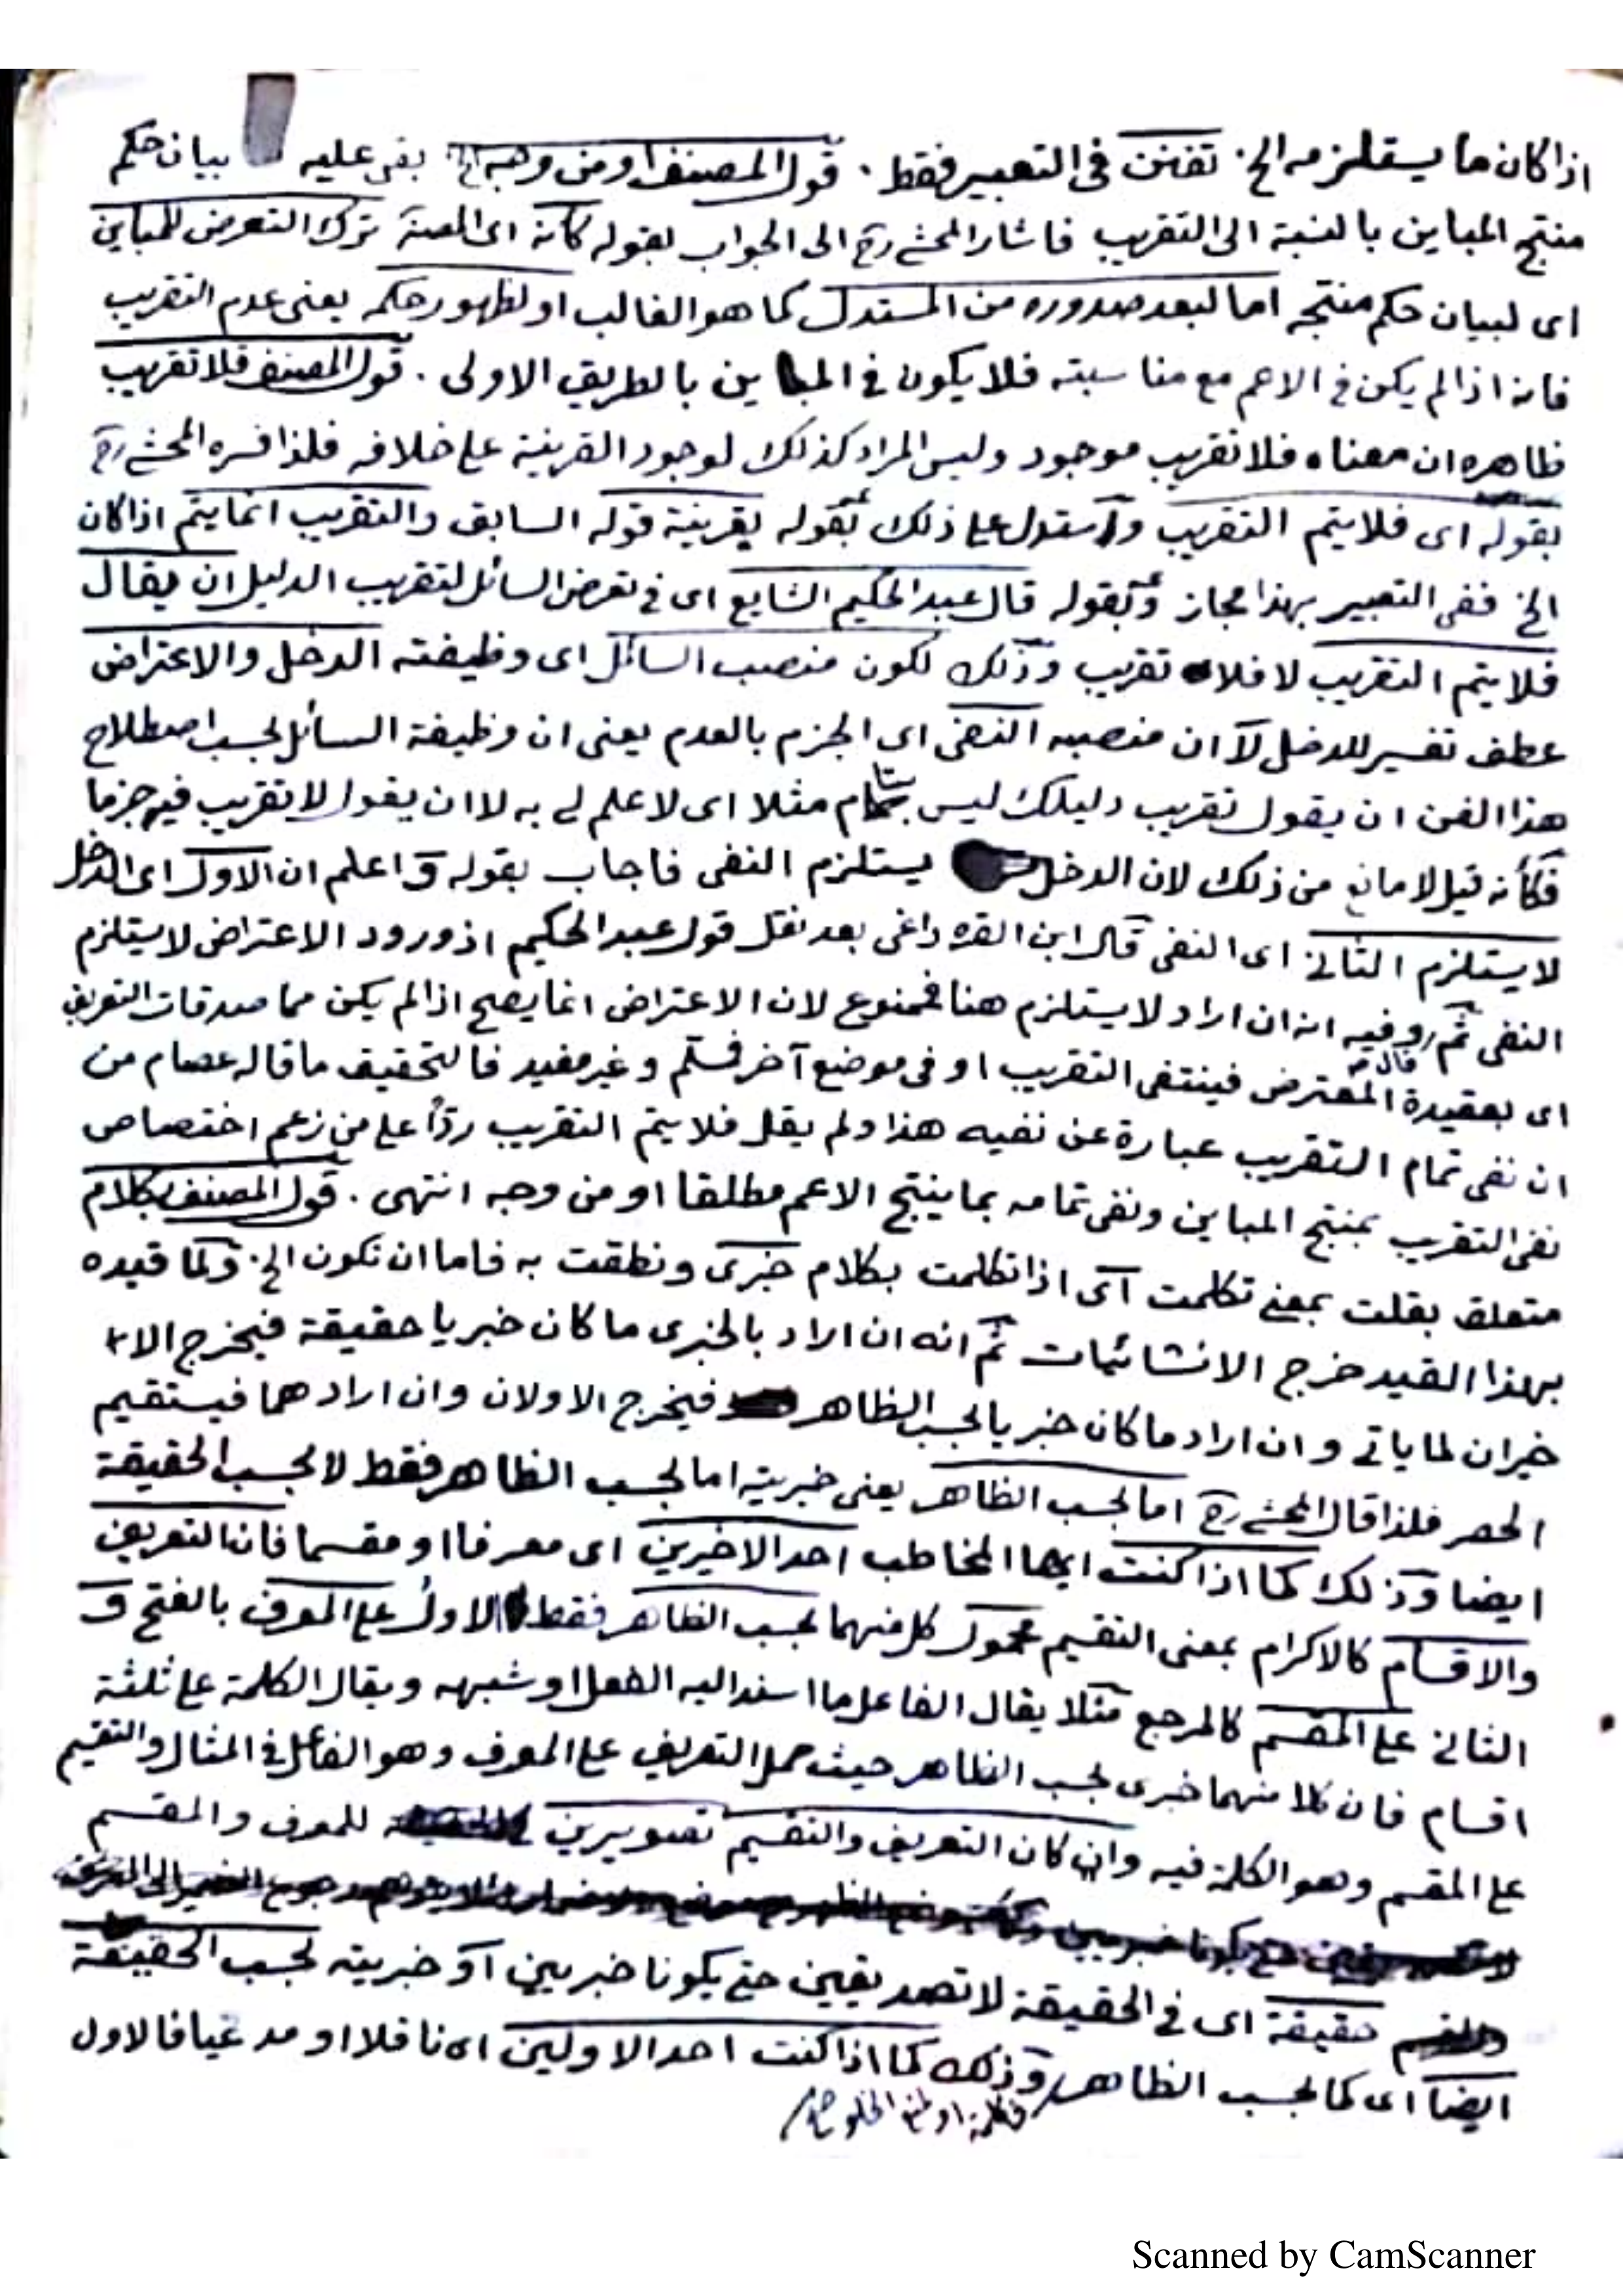 اذا كان ما يستلزمه الخ. تفنن فى التعبير فقط. قول المصنف او من وجه الخ بقى عليه بيان حكم
منتج المباين بالنسبة الى التقريب فاشار المحشى رح الى الجواب بقوله كأنه اى المصنف ترك التعرض للمباين
اى لبيان حكم منتجه اما لبعد صدوره من المستدل كما هو الغالب او لظهور حكمه يعنى عدم التقريب
فانه اذا لم يكن فى الاعم مع مناسبته فلا يكون فى المباين بالطريق الاولى. قول المصنف فلا تقريب
ظاهره ان معناه فلا تقريب موجود وليس المراد كذلك لوجود القرينة على خلافه فلذا فسره المحشى رح
بقوله اى فلا يتم التقريب واستدل على ذلك بقوله بقرينة قوله السابق والتقريب انما يتم اذا كان
الخ ففى التعبير بهذا مجاز وبقوله قال عبد الحكيم الشايع اى فى تعرض السائل لتقريب الدليل ان يقال
فلا يتم التقريب لا فلا تقريب وذلك لكون منصب السائل اى وظيفته الدخل والاعتراض
عطف تفسير للدخل لا ان منصبه النفى اى الجزم بالعدم يعنى ان وظيفة السائل بحسب اصطلاح
هذا الفن ان يقول تقريب دليلك ليس بتام مثلا اى لا علم لى به لا ان يقول لا تقريب فيه جزما
فكأنه قيل لا مانع من ذلك لان الدخل يستلزم النفى فاجاب بقوله واعلم ان الاول اى الدخل
لا يستلزم الثانى اى النفى قال ابن القره داغى بعد نقل قول عبد الحكيم اذ ورود الاعتراض لا يستلزم
النفى ثم وفيه انه ان اراد لا يستلزم هنا فممنوع لان الاعتراض انما يصح اذا لم يكن مما صدقات التعريف
اى بعقيدة المعترض فينتفى التقريب او فى موضع آخر فمسلم وغير مفيد فالتحقيق ما قاله عصام من
ان نفى تمام التقريب عبارة عن نفيه هذا ولم يقل فلا يتم التقريب ردًا على من زعم اختصاص
نفى التقريب بمنتج المباين ونفى تمامه بما ينتج الاعم مطلقا او من وجه انتهى. قول المصنف بكلام
متعلق بقلت بمعنى تكلمت اى اذا تكلمت بكلام خبرى ونطقت به فاما ان تكون الخ. ولما قيده
بهذا القيد خرج الانشائيات ثم انه ان اراد بالخبرى ما كان خبريا حقيقة فيخرج الا
خيران لما ياتى وان اراد ما كان خبريا بحسب الظاهر فيخرج الاولان وان اراد هما فيستقيم
الحصر فلذا قال المحشى رح اما بحسب الظاهر يعنى خبريته اما بحسب الظاهر فقط لا بحسب الحقيقة
ايضا وذلك كما اذا كنت ايها المخاطب احد الاخيرين اى معرفا او مقسما فان التعريف
والاقسام كالاكرام بمعنى التقسيم محمول كل منهما بحسب الظاهر فقط الاول على المعرف بالفتح و
الثانى على المقسم كالمرجع مثلا يقال الفاعل ما اسند اليه الفعل او شبهه ويقال الكلمة على ثلثة
اقسام فان كلا منهما خبرى بحسب الظاهر حيث حمل التعريف على المعرف وهو الفاعل فى المثال والتقسيم
على المقسم وهو الكلمة فيه وان كان التعريف والتقسيم تصويرين للمعرف والمقسم
حقيقة اى فى الحقيقة لا تصديقيين حتى يكونا خبريين او خبريته بحسب الحقيقة
ايضا اى كما بحسب الظاهر وذلك كما اذا كنت احد الاولين اى ناقلا او مدعيا فالاول
Scanned by CamScanner